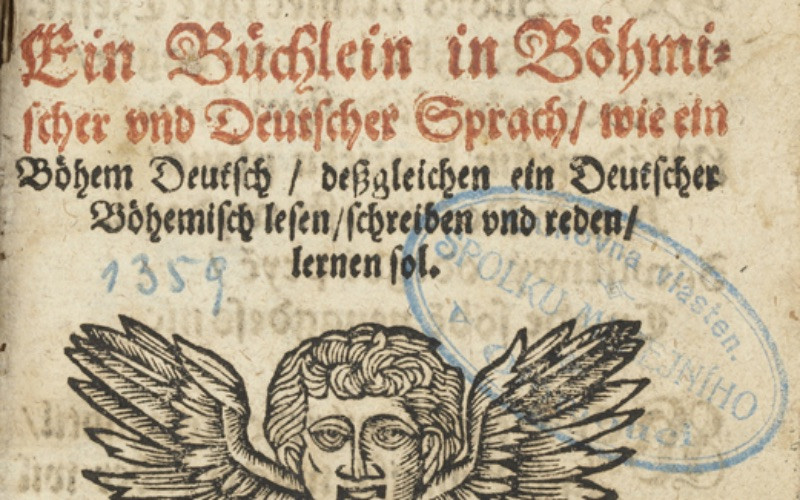 Ein Büchlein in Böhmi⸗
scher vnd Deutscher Sprach/ wie ein
Böhem Deutsch / deßgleichen ein Deutscher
Böhemisch lesen/schreiben vnd reden/
lernen sol.
1359
vlasten.
SPOLKU MUZEJNÍHO